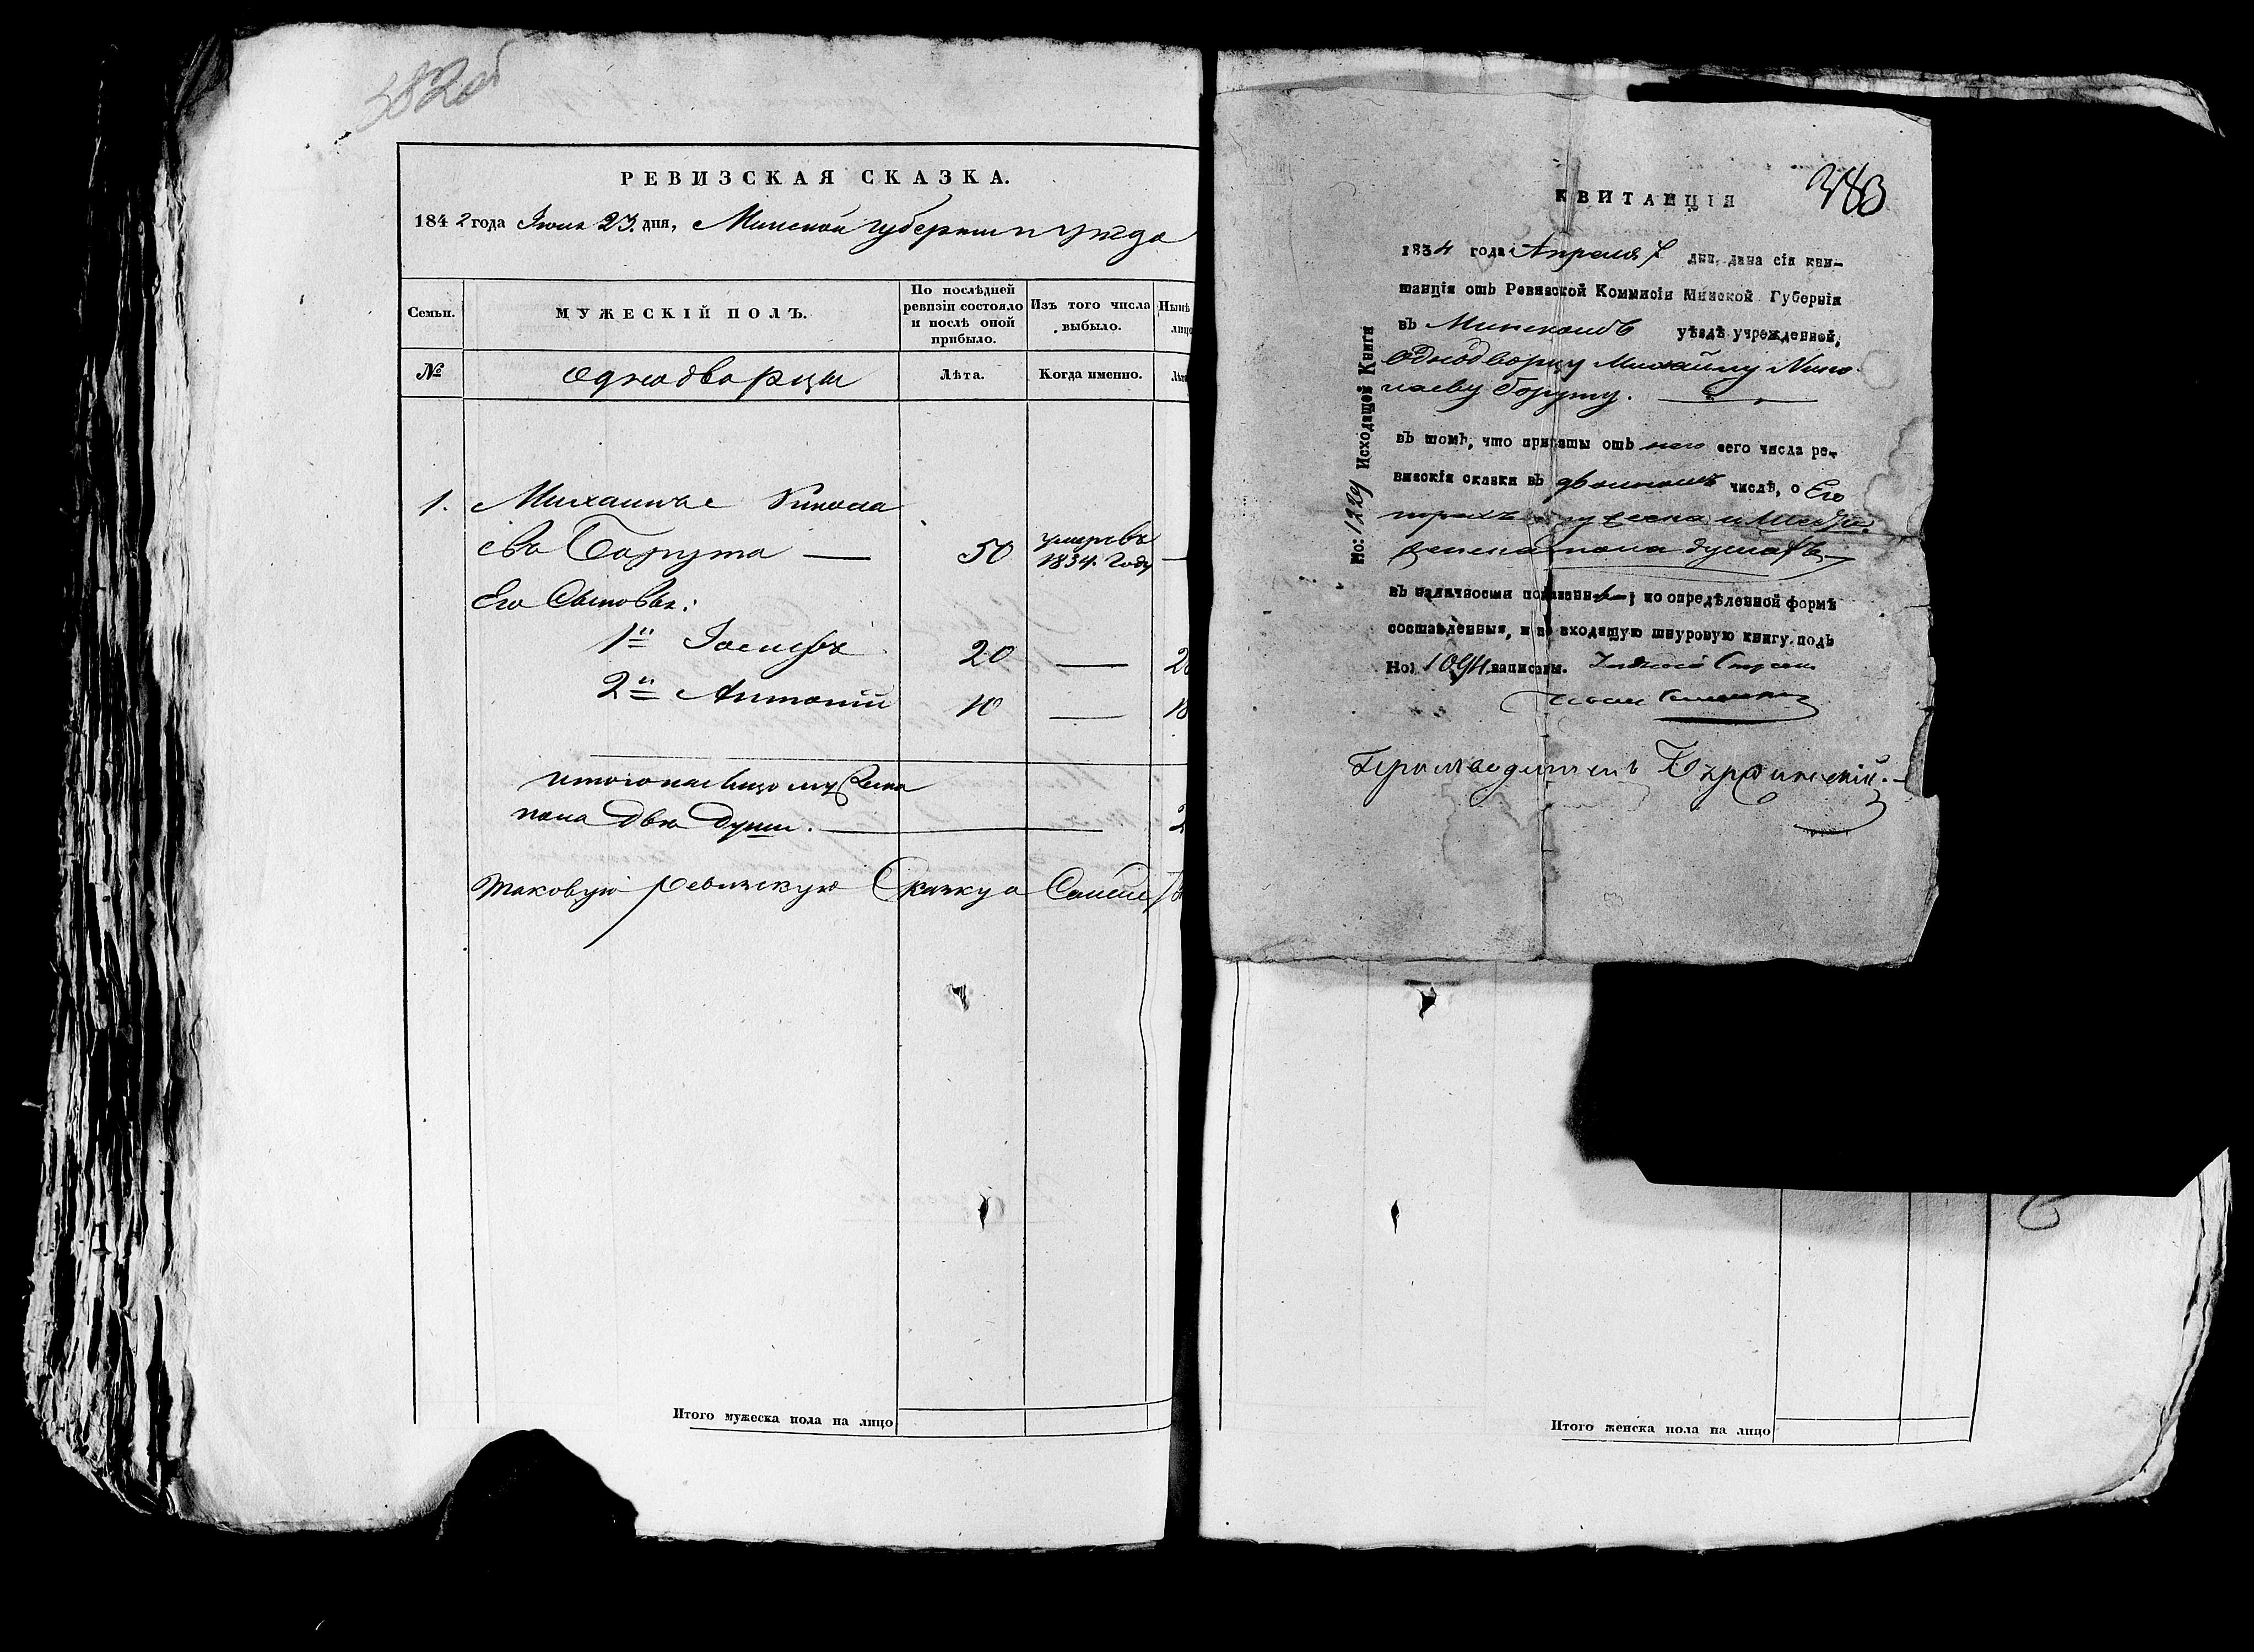 382об
РЕВИЗСКАЯ СКАЗКА.
1842 года Іюня 23. дня, Минской губерніи и уезда
Семьи. МУЖЕСКІЙ ПОЛЪ. По послѣдней ревизіи состояло и послѣ оной прибыло. Изъ того числа выбыло. Нынѣ лицо
№ однодворцы Лѣта. Когда именно. Лѣт
1. Михаилъ Никола
евъ Борута — 50 умеръ въ 1834. Году —
Его Сыновья:
1й Іосифъ 20 — 28
2й Антоній 10 — 18
итого на лицо мужеска
пола две души. — 2
Таковую ревизскую Сказку
Итого мужеска пола на лицо
383
КВИТАНЦІЯ
1834 года Апреля 7 дня, дана сія кви-
танція отъ Ревизской Коммисіи Минской Губерніи
въ Минскомъ уѣздѣ учрежденной,
Однодворцу Михайлу Нико-
лаеву Боруту.
въ томъ, что приняты отъ него сего числа ре-
визскія сказки въ двойномъ числѣ, о Его
трехъ мужеска и
женска пола душахъ
въ наличности по определенной формѣ
составленныя, и во входящую шнуровую книгу подъ
Но: 1094 записаны.
Производитель
Но: 1229 Исходящей Книги
Итого женска пола на лицо